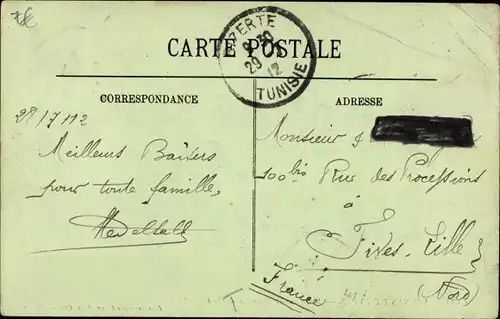 ZERTE
9 30
29 12
TUNISIE
CARTE POSTALE
CORRESPONDANCE
ADRESSE
28/7/12
Meilleurs Baisers
pour toute famille,
Monsieur
100 bis Rue des Processions
à
Fives-Lille
(Nord)
France